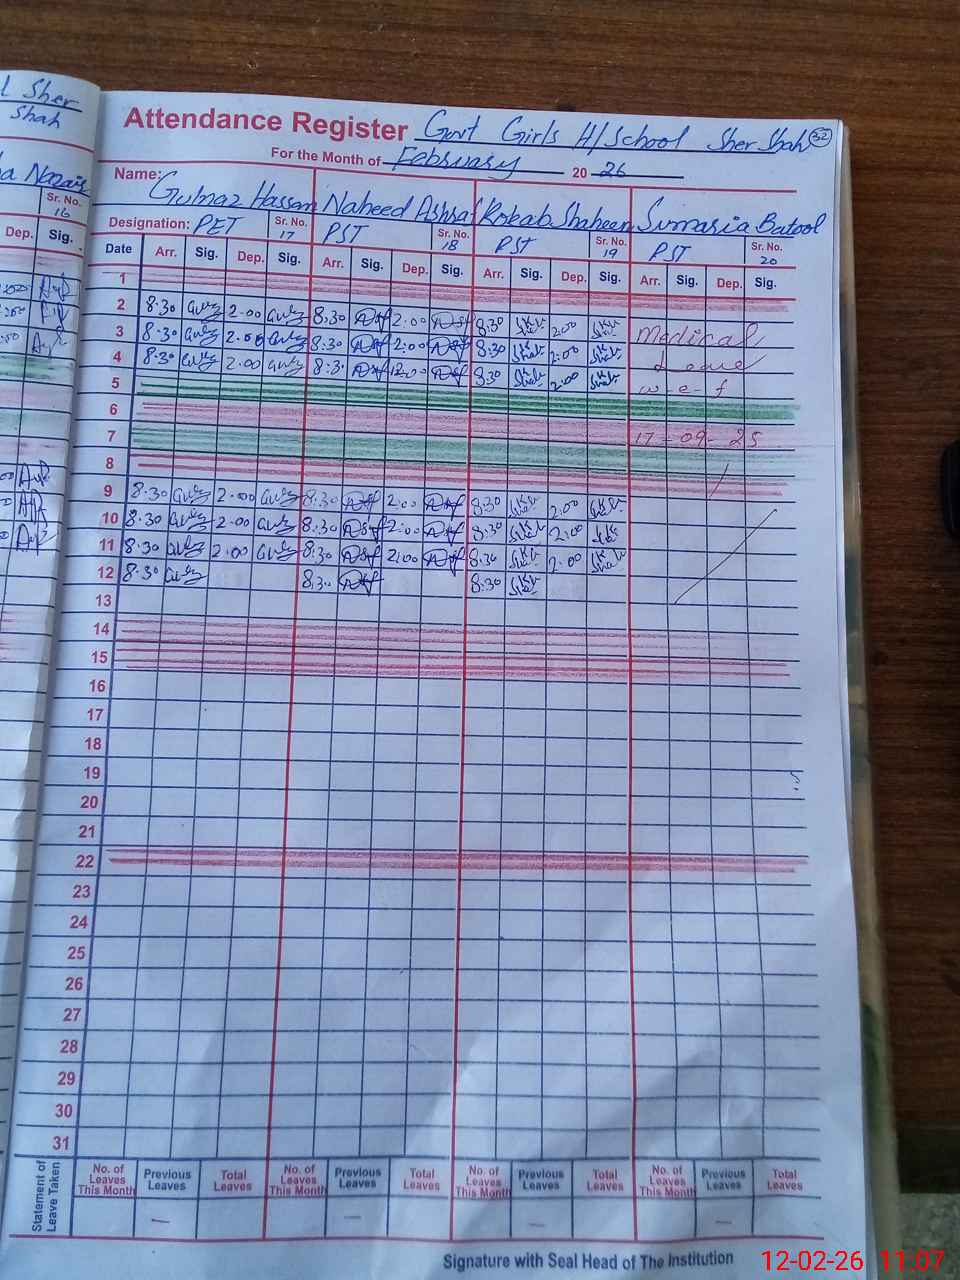 l Sher
Shah
Sr. No.
16
Dep. Sig.
Attendance Register Govt Girls H/School Sher Shah 32
For the Month of February 20 26
Name: Gulnaz Hassan Naheed Ashraf Rokab Shaheen Sumaria Batool
Designation: PET Sr. No. 17 PST Sr. No. 18 PST Sr. No. 19 PST Sr. No. 20
Date Arr. Sig. Dep. Sig. Arr. Sig. Dep. Sig. Arr. Sig. Dep. Sig. Arr. Sig. Dep. Sig.
1
2 8:30 2-00 8:30 2:00 8:30 2:00
3 8:30 2-00 8:30 2:00 8:30 2:00 Medical
4 8:30 2.00 8:3. 2.00 8:30 2:00 Leave
5 w-e-f
6
7 17-09-25
8
9 8:30 2-00 8:30 2:00 8:30 2.00
10 8:30 2-00 8:30 2:00 8:30 2:00
11 8:30 2-00 8:30 2:00 8:30 2.00
12 8:30 8:3. 8:30
13
14
15
16
17
18
19
20
21
22
23
24
25
26
27
28
29
30
31
Statement of Leave Taken
No. of Leaves This Month Previous Leaves Total Leaves No. of Leaves This Month Previous Leaves Total Leaves No. of Leaves This Month Previous Leaves Total Leaves No. of Leaves This Month Previous Leaves Total Leaves
— — — —
Signature with Seal Head of The Institution
12-02-26 11:07